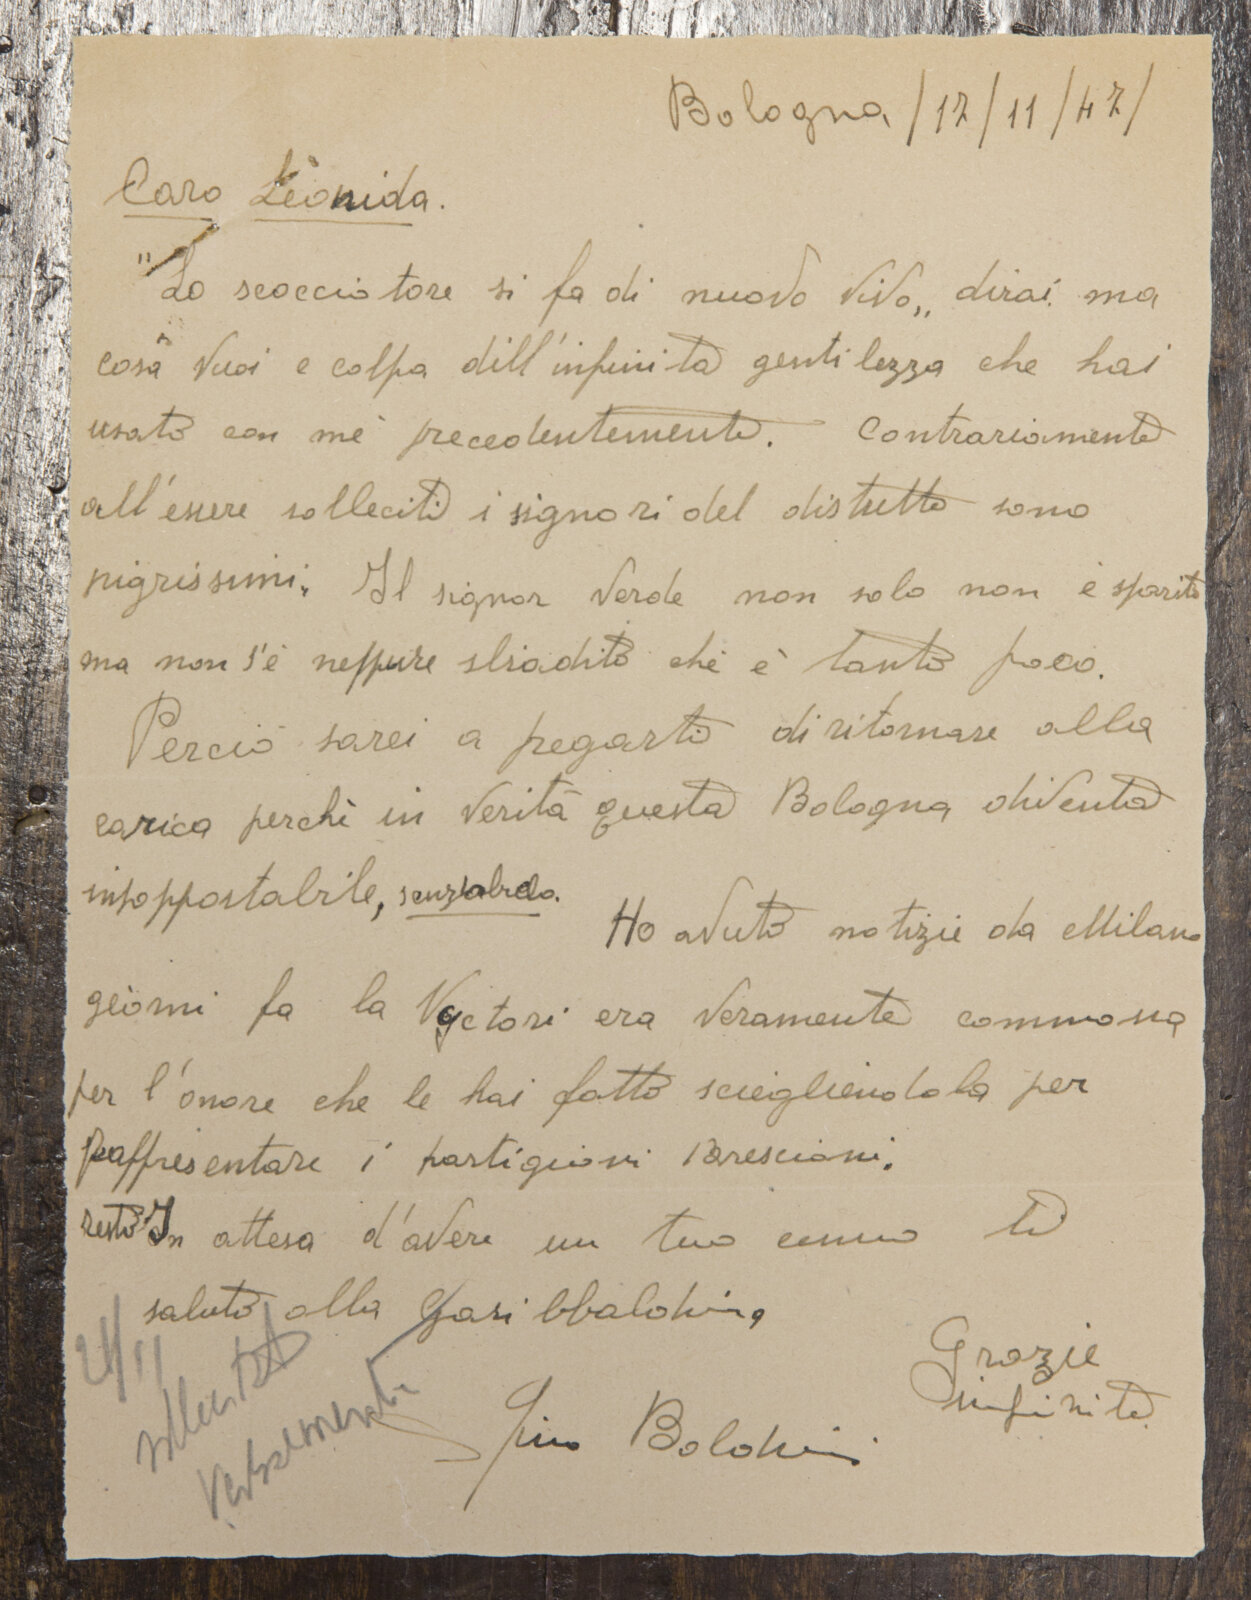 Bologna /17/11/47/
Caro Leonida.
"Lo scocciatore si fa di nuovo vivo,, dirai ma
cosa vuoi e colpa dell'infinita gentilezza che hai
usato con me precedentemente. Contrariamente
all'essere solleciti i signori del distretto sono
pigrissimi. Il signor Verde non solo non è sparito
ma non s'è neppure sbiadito che è tanto poco.
Perciò sarei a pregarti di ritornare alla
carica perchè in verità questa Bologna diventa
insopportabile,
Ho avuto notizie da Milano
giorni fa la era veramente commossa
per l'onore che le hai fatto sciegliendola per
rappresentare i partigiani Bresciani.
resto In attesa d'avere un tuo cenno ti
saluto alla Garibbaldina
Grazie
infinite
Gino Boldini
21/11
sollecitato
Verbalmente